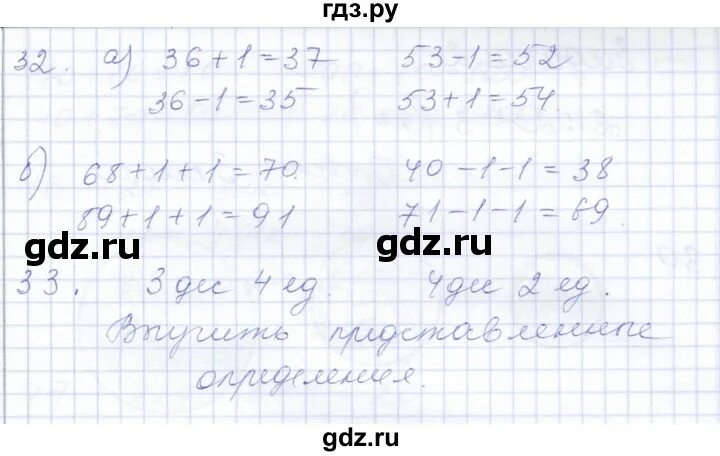 гдз.ру
32. а) 36+1=37 53-1=52
36-1=35 53+1=54.
б) 68+1+1=70. 40-1-1=38
89+1+1=91 71-1-1=69.
gdz.ru gdz.ru
33. 3 дес 4 ед. 4 дес 2 ед.
Выучить представленные
определения.
gdz.ru